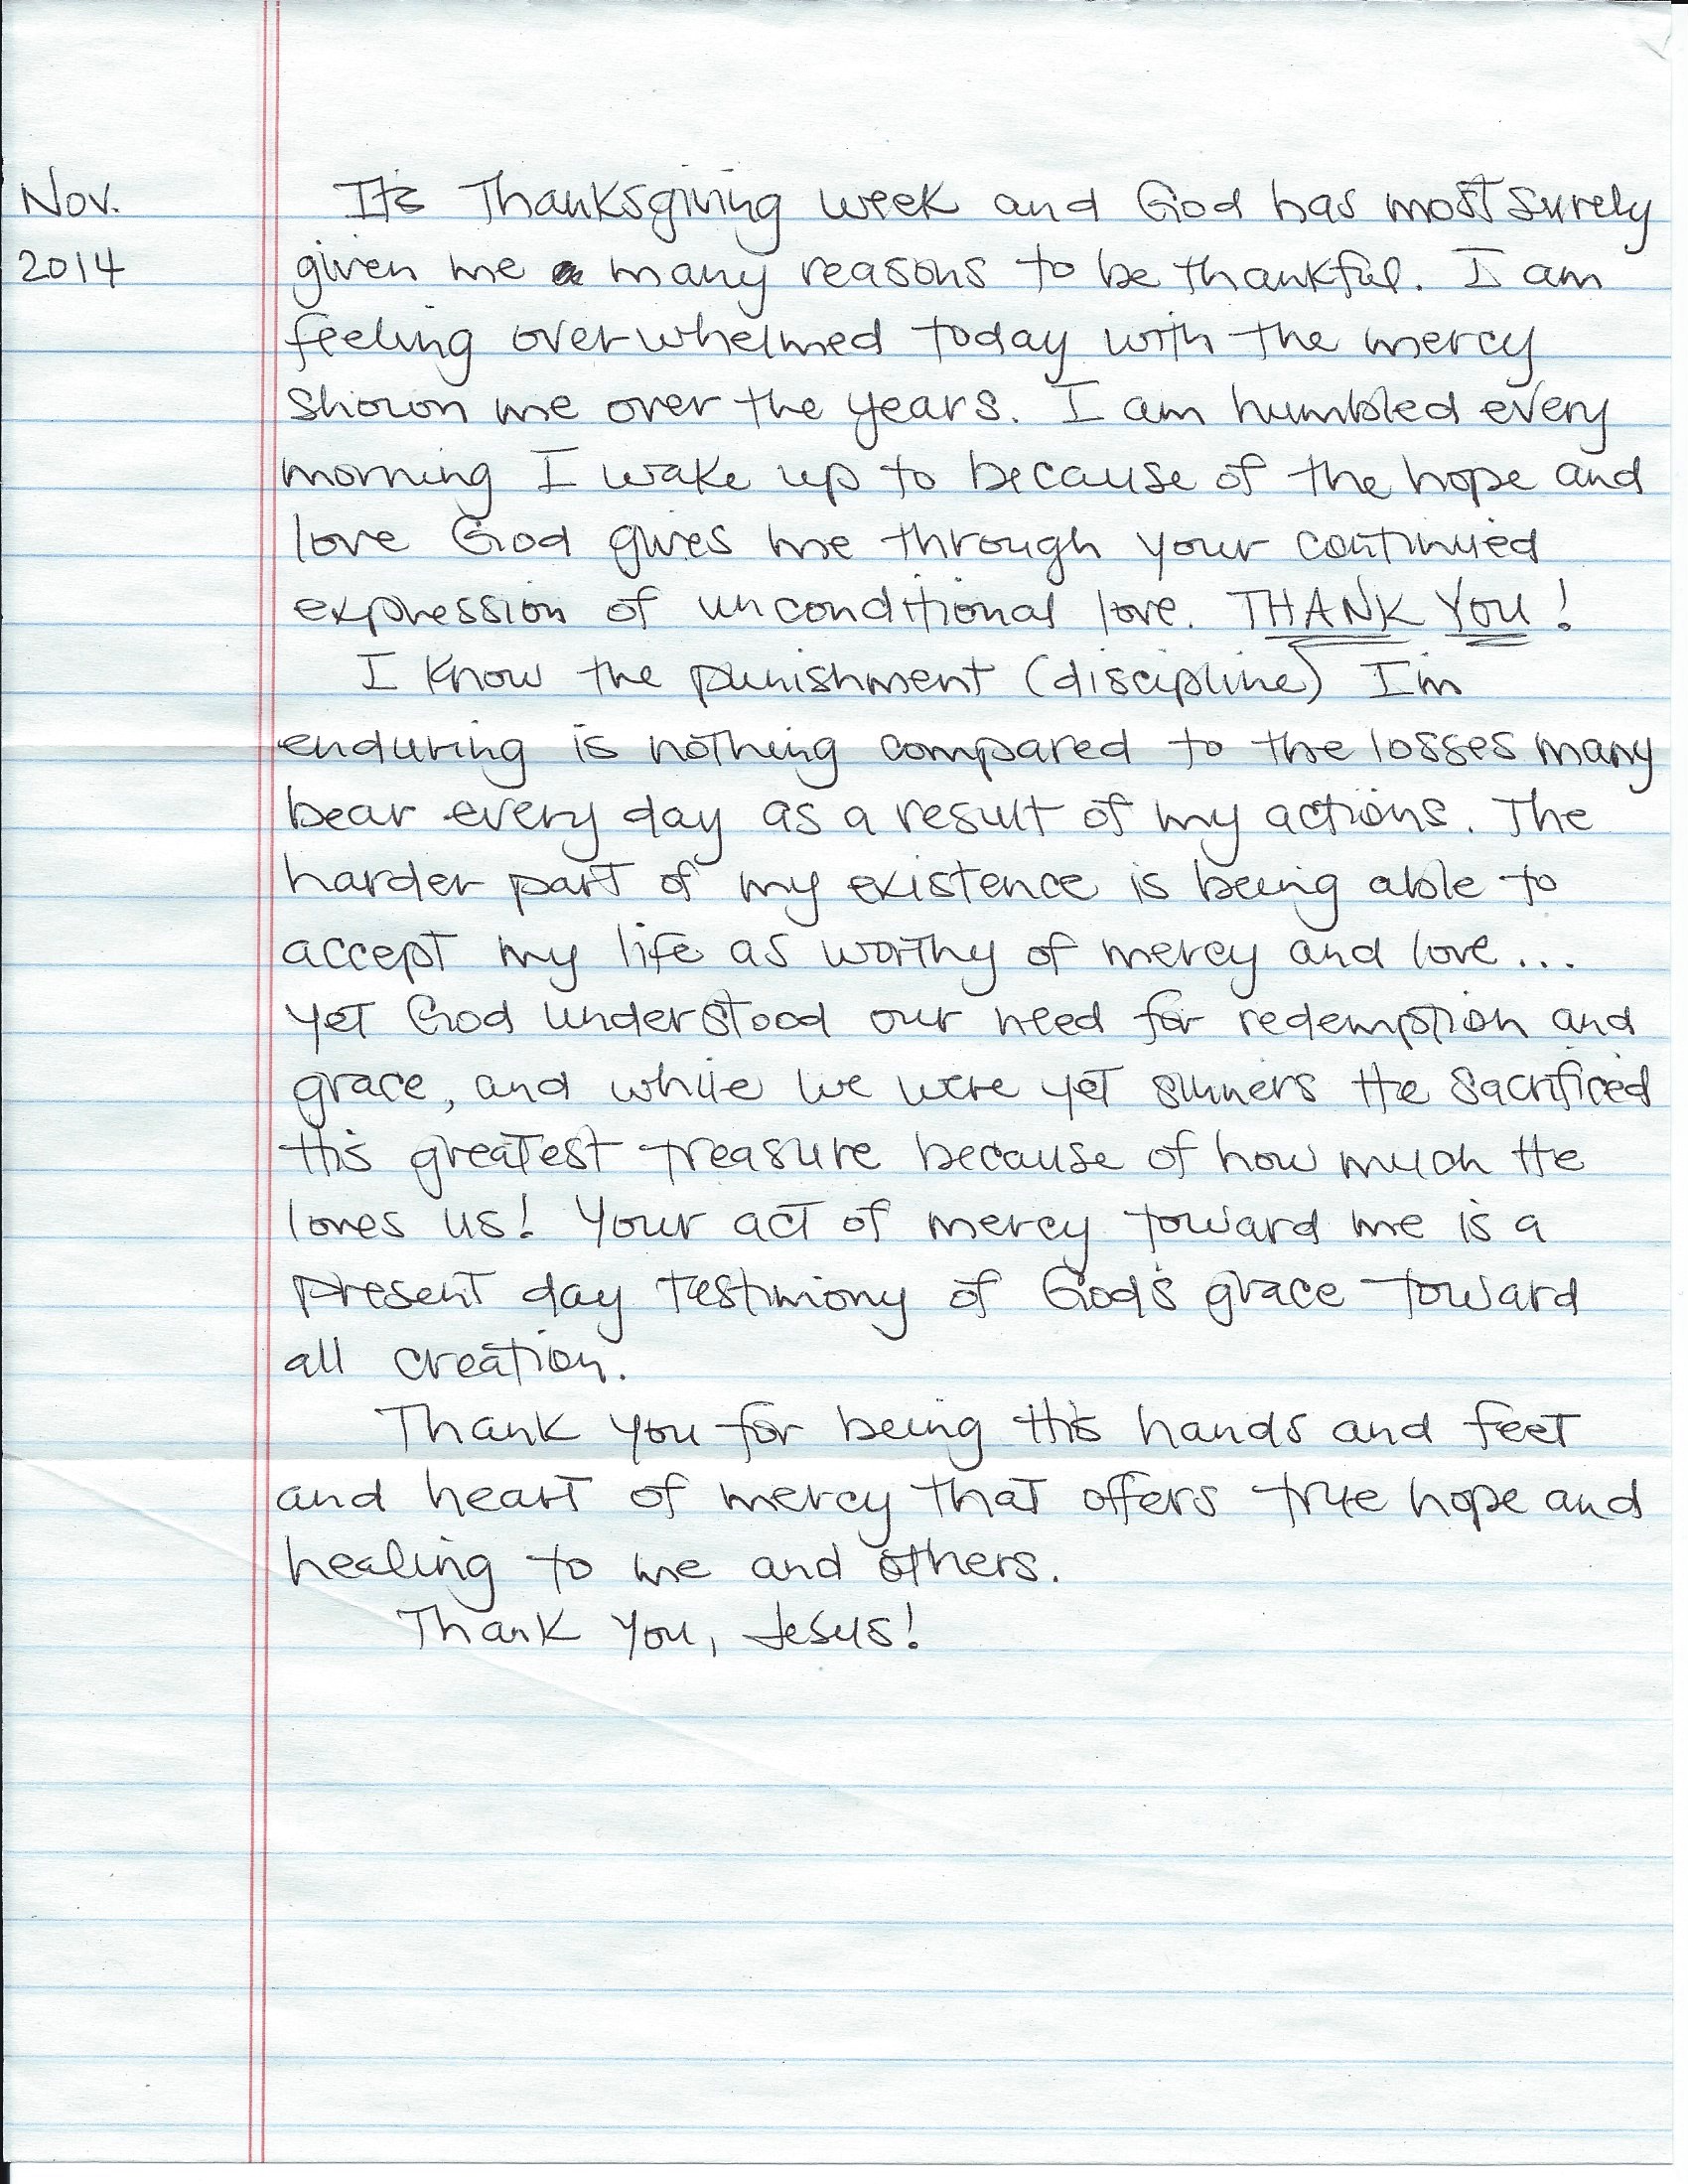 Nov.
2014
It's Thanksgiving week and God has most surely
given me many reasons to be thankful. I am
feeling overwhelmed today with the mercy
shown me over the years. I am humbled every
morning I wake up to because of the hope and
love God gives me through your continued
expression of unconditional love. THANK YOU!
I know the punishment (discipline) I'm
enduring is nothing compared to the losses many
bear every day as a result of my actions. The
harder part of my existence is being able to
accept my life as worthy of mercy and love...
yet God understood our need for redemption and
grace, and while we were yet sinners He sacrificed
His greatest treasure because of how much He
loves us! Your act of mercy toward me is a
present day testimony of God's grace toward
all creation.
Thank you for being His hands and feet
and heart of mercy that offers true hope and
healing to me and others.
Thank You, Jesus!